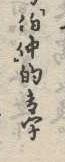 「伯仲」的专字